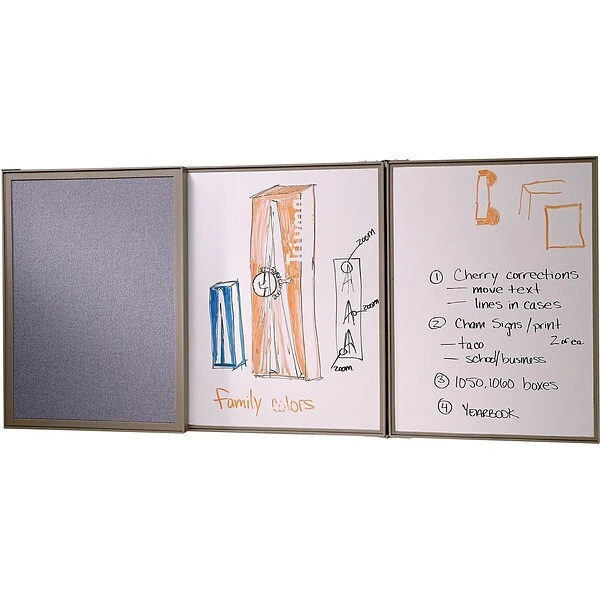 Triumph
zoom
A
A
zoom
A
zoom
Family colors
① Cherry corrections
— move text
— lines in cases
② Cham Signs/print
— taco 2 of ea.
— school/business
③ 1050, 1060 boxes
④ YEARBOOK